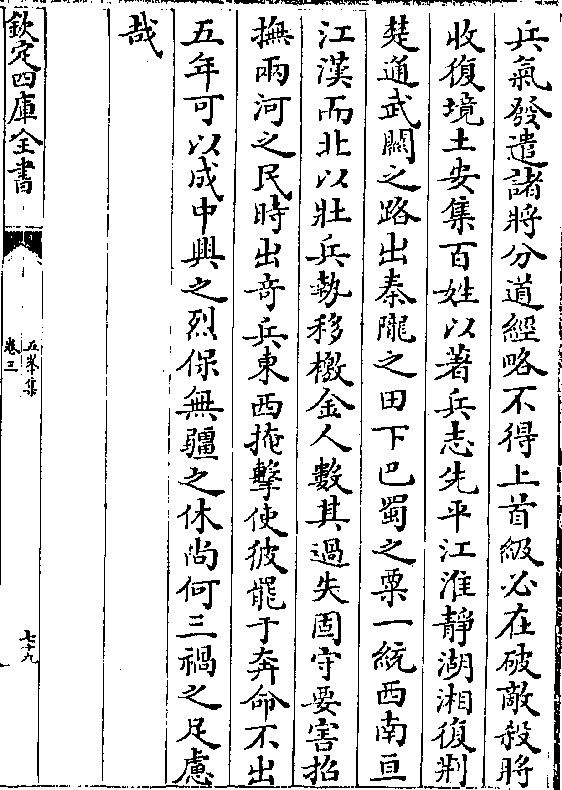 兵氣發遣諸將分道經略不得上首級必在破敵殺將
收復境土安集百姓以著兵志先平江淮靜湖湘復荆
楚通武關之路出秦隴之田下巴蜀之粟一統西南亘
江漢而北以壯兵埶移檄金人數其過失固守要害招
撫兩河之民時出竒兵東西掩擊使彼罷于奔命不出
五年可以成中興之烈保無疆之休尚何三禍之足慮
哉
欽定四庫全書
五峯集
卷三
七十九